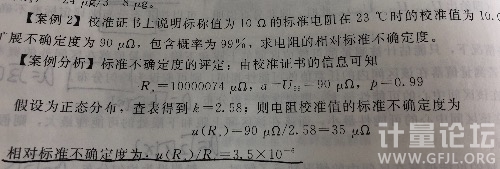 【案例2】校准证书上说明标称值为10 Ω的标准电阻在23 ℃时的校准值为10.0
扩展不确定度为90 μΩ，包含概率为99%，求电阻的相对标准不确定度。
【案例分析】标准不确定度的评定：由校准证书的信息可知
Rs=10000074 μΩ，a=U99=90 μΩ，p=0.99
假设为正态分布，查表得到k=2.58；则电阻校准值的标准不确定度为
u(Rs)=90 μΩ/2.58=35 μΩ
相对标准不确定度为：u(Rs)/Rs=3.5×10⁻⁶
计量论坛
WWW.GFJL.ORG